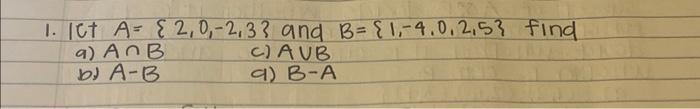 1. let A= {2,0,-2,3} and B= {1,-4,0,2,5} find
a) A∩B c) A∪B
b) A-B d) B-A